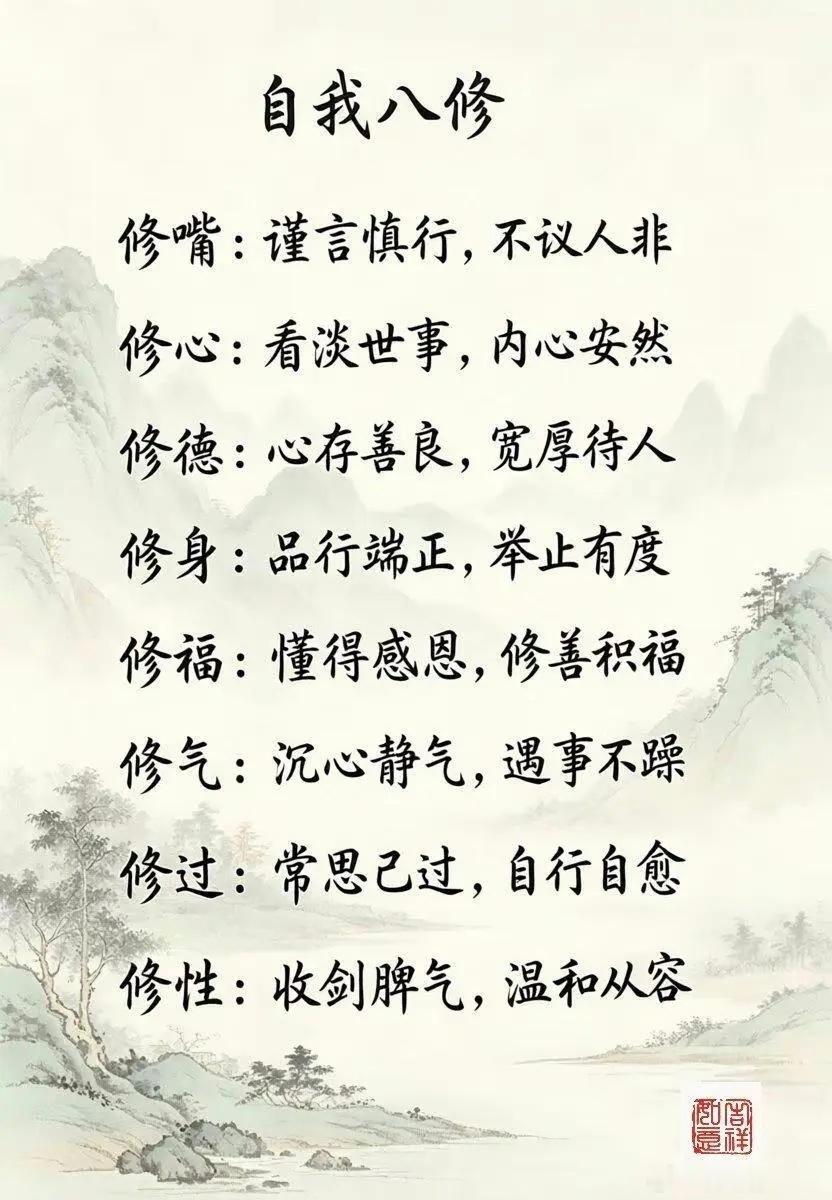 自我八修
修嘴：谨言慎行，不议人非
修心：看淡世事，内心安然
修德：心存善良，宽厚待人
修身：品行端正，举止有度
修福：懂得感恩，修善积福
修气：沉心静气，遇事不躁
修过：常思己过，自行自愈
修性：收剑脾气，温和从容
吉祥
如意